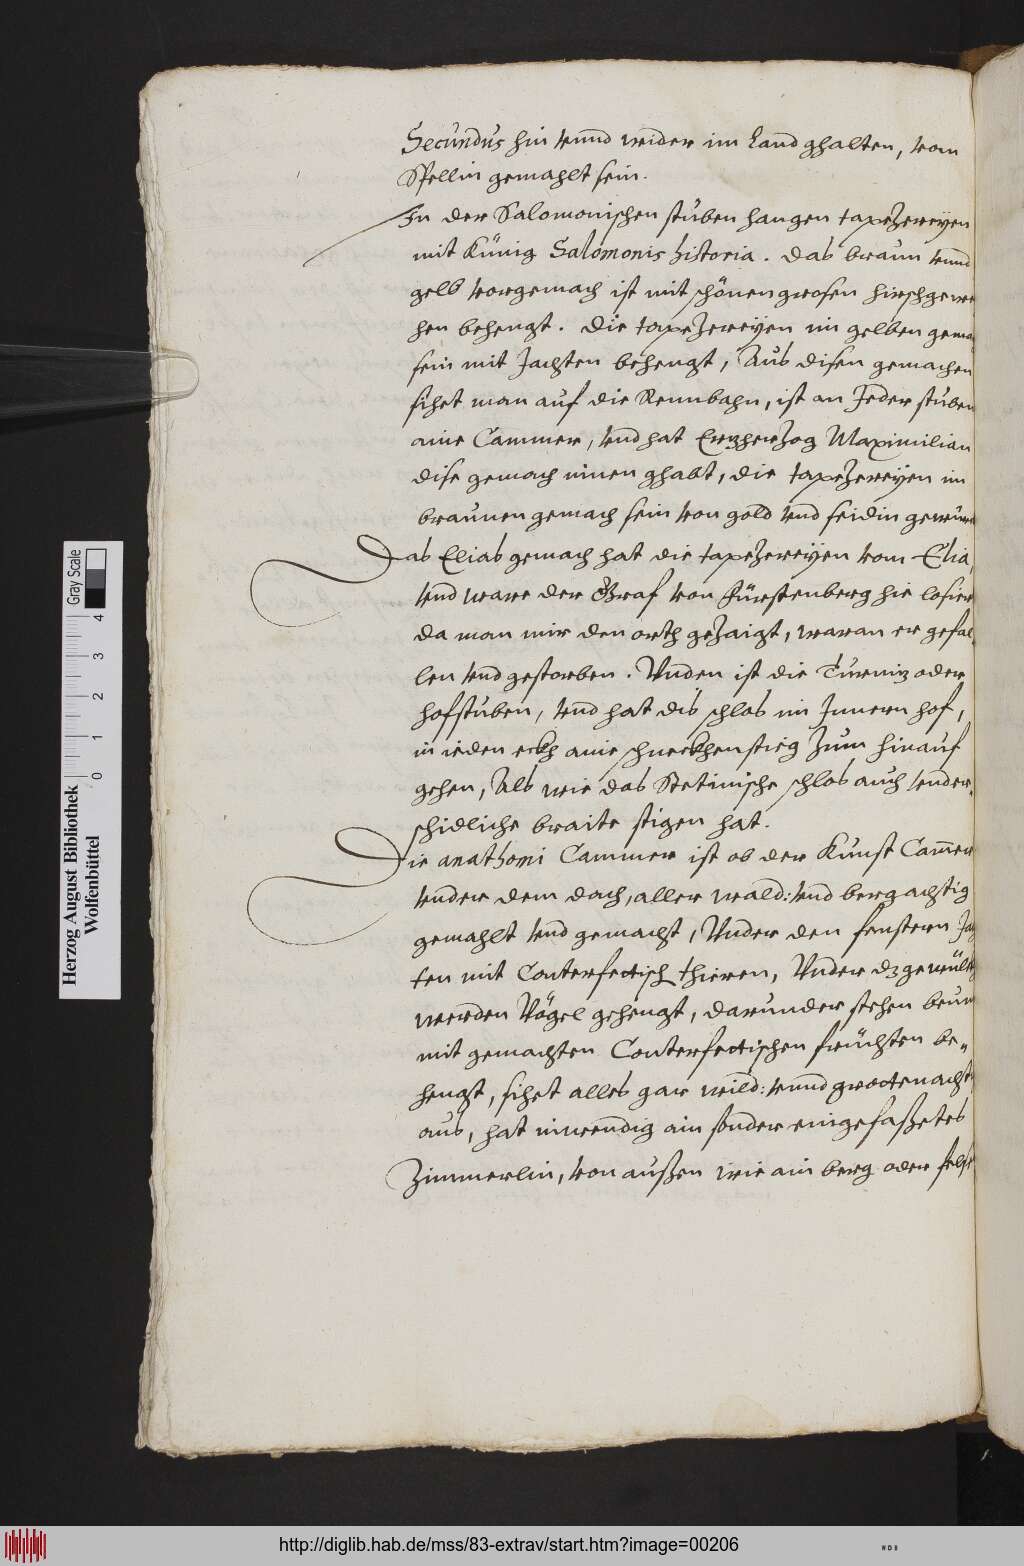 Secundus hin vnnd wider im Land ghalten, vom
Spellin gemahlt sein.
In der Salomonischen stuben hangen tapezereÿen
mit Künig Salomonis historia. das braun vnnd
gelb vorgemach ist mit schönen grosen hirschgewe
hen behengt. die tapezereÿen im gelben gema
sein mit Jachten behengt, Aus disen gemachen
sihet man auf die Rennbahn, ist an Jeder stuben
aine Cammer, vnd hat Erzherzog Maximilian
dise gemach innen ghabt, die tapezereÿen im
braunen gemach sein von gold vnd seidin gewürn
Das Elias gemach hat die tapezereÿen vom Elia,
vnd ware der Graf von Fürstenberg hie losier
da man mir den orth gezaigt, waran er gefal¬
len vnd gestorben. Vnden ist die Turniz oder
hofstuben, vnd hat dis schlos im Innern hof,
in ieden eckh ainie schneckhenstieg zum hinauf
gehen, Als wie das Stetinische schlos auch vnder¬
schidliche braite stigen hat.
Die anathomi Cammer ist ob der Kunst Cam̄er
vnder dem dach, aller wald: vnd bergachtig
gemahlt vnd gemacht, Vnder den fenstern Jag
ten mit Conterfectisch thieren, Vnder dz gewülb
werden Vögel gehengt, darunder stehen beum
mit gemachten Conterfectischen früchten be„
hengt, sihet alles gar wild: vnnd grottenacht
aus, hat inwendig ain sonder eingefaßetes
Zimmerlin, von außen wie ain berg oder fels
Herzog August Bibliothek
Wolfenbüttel
0 1 2 3 4
Gray Scale
http://diglib.hab.de/mss/83-extrav/start.htm?image=00206